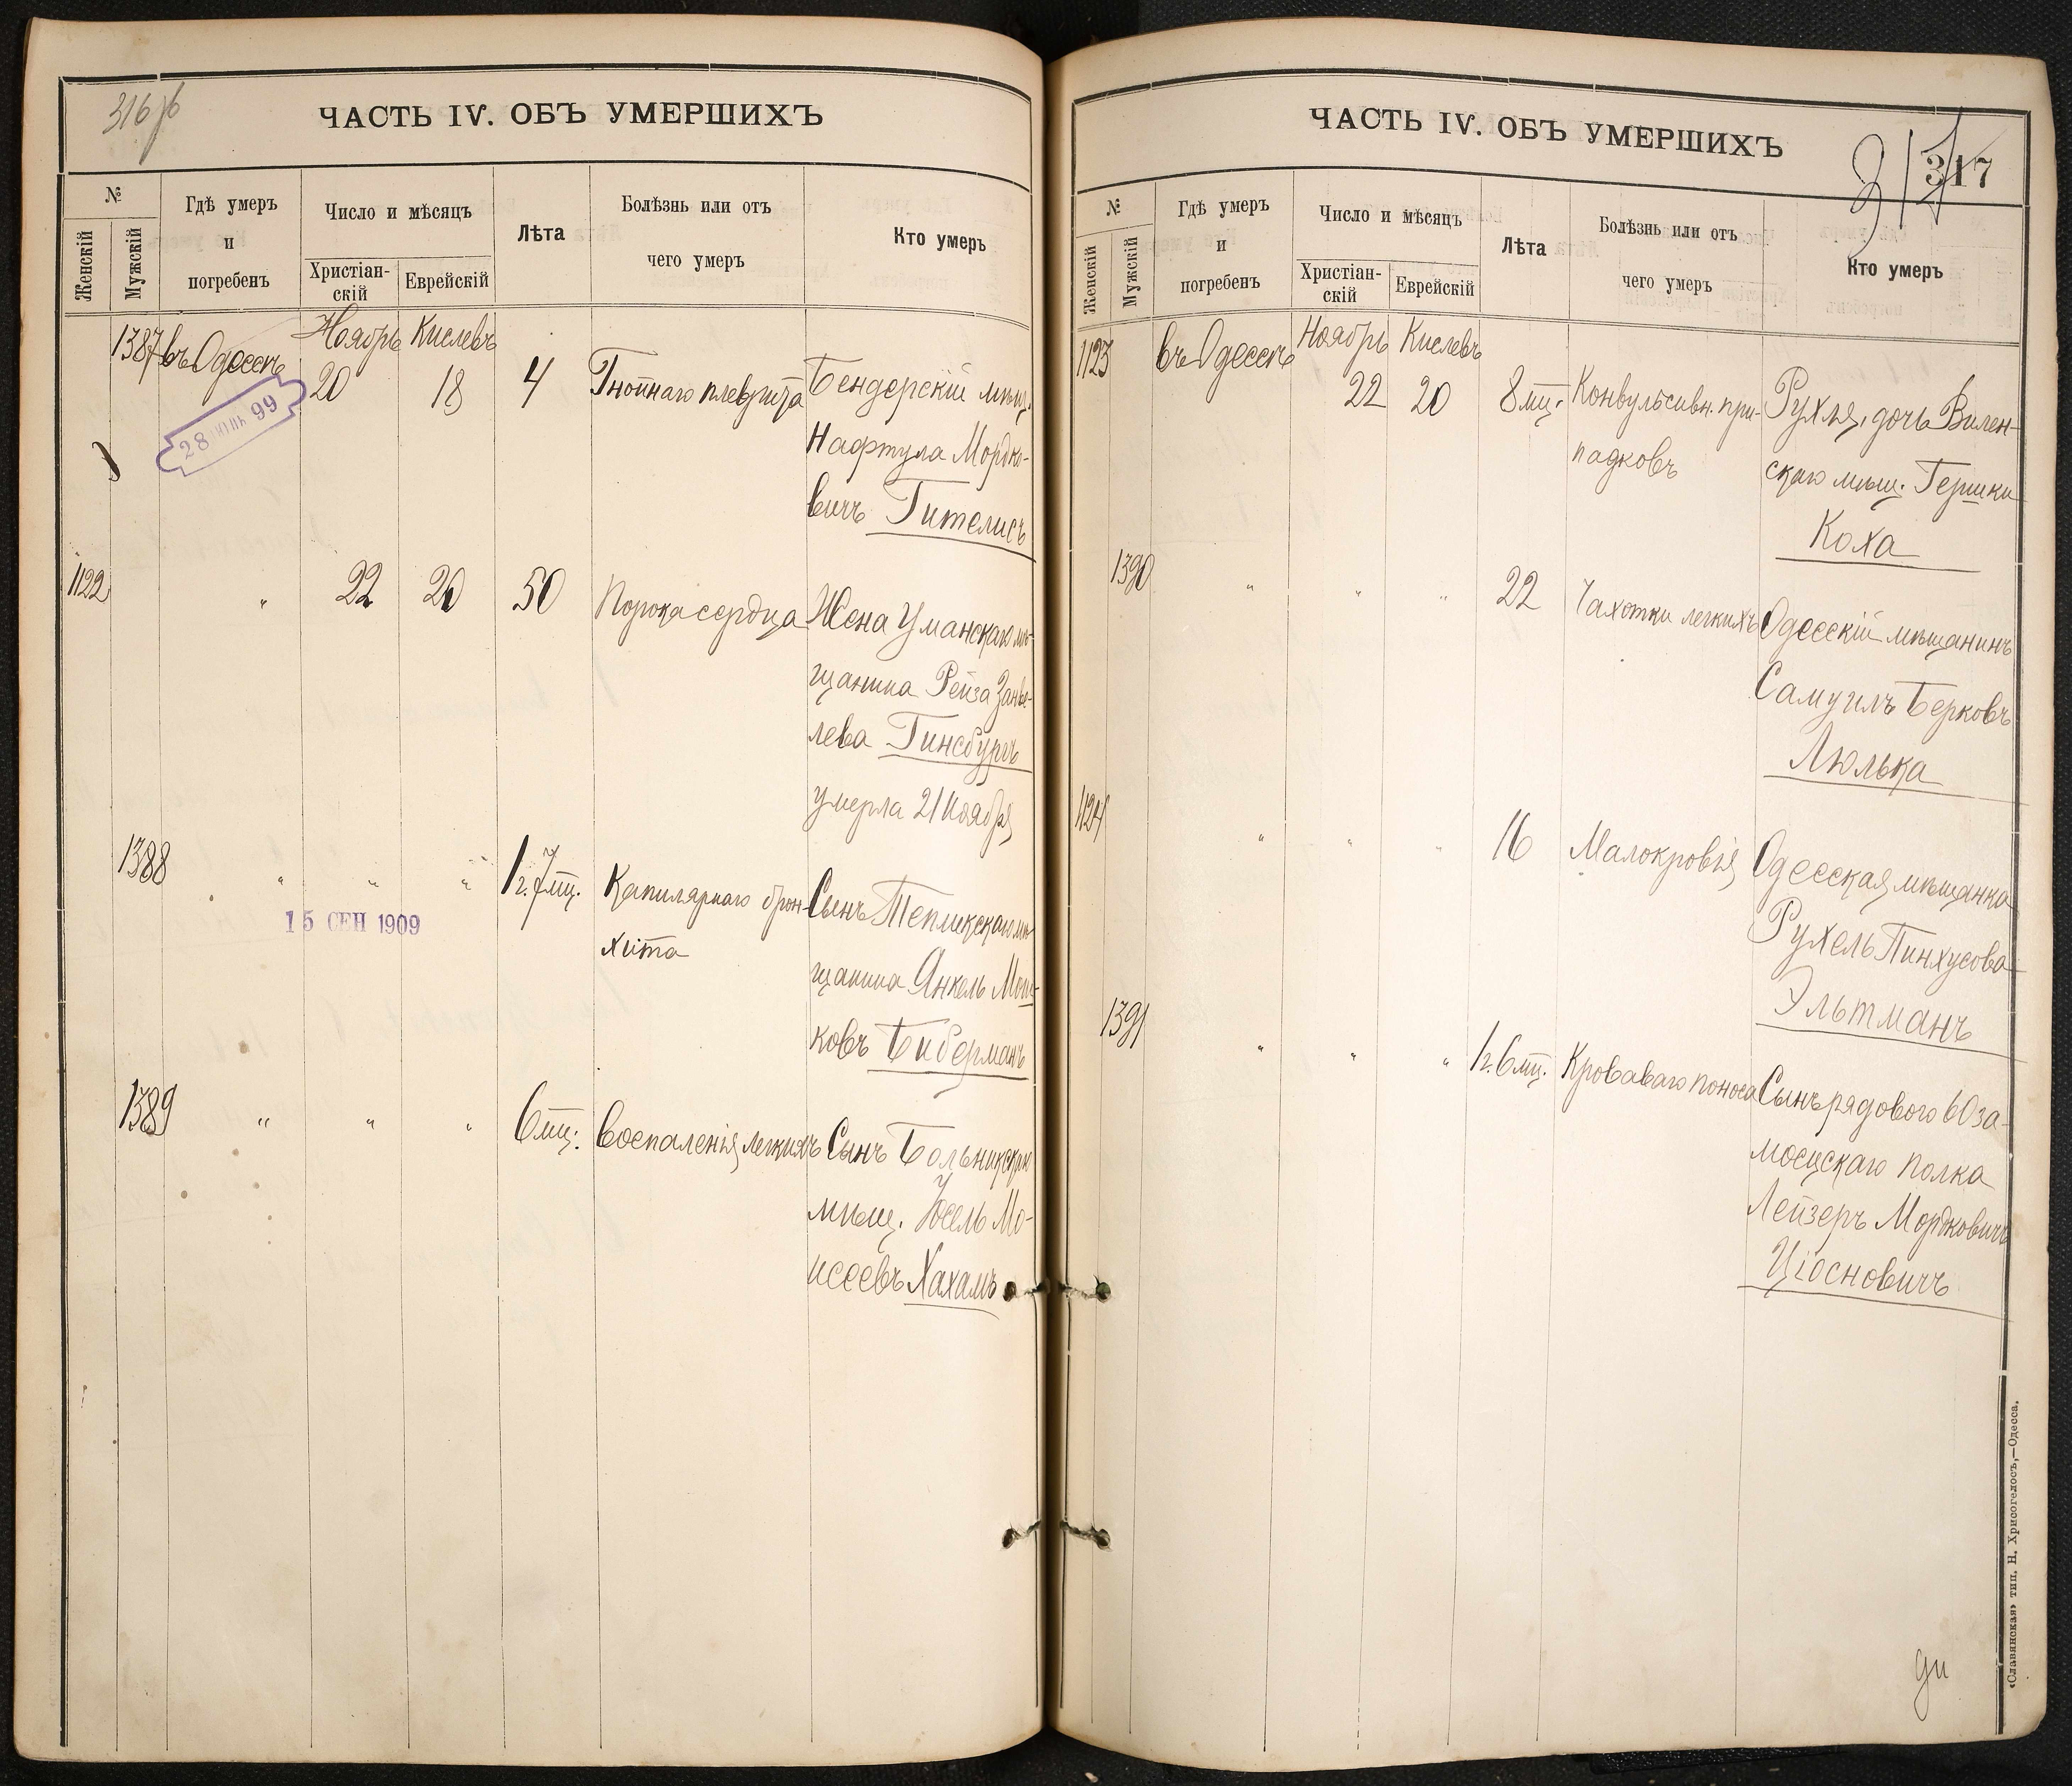 316 об
ЧАСТЬ IV. ОБЪ УМЕРШИХЪ
№
Женскій
Мужскій
Гдѣ умеръ
и
погребенъ
Число и мѣсяцъ
Христіан-
скій
Еврейскій
Лѣта
Болѣзнь или отъ
чего умеръ
Кто умеръ
1387 въ Одессѣ Ноябрь Кислевъ
20 18 4 Гнойнаго плеврита Бендерскій мѣщ.
28 99
Нафтула Мордко-
вичъ Гителисъ
1122 " 22 20 50 Порока сердца Жена Уманскаго мѣ-
щанина Рейза Занве-
лева Гинсбургъ
умерла 21 Ноября
1388 " " " 1 г. 7 мц. Капилярнаго брон- Сынъ Тепликскаго мѣ-
15 СЕН 1909
хита
щанина Янкель Мош-
ковъ Биберманъ
1389 " " " 6 мц. Воспаленія легкихъ Сынъ
мѣщ. Іосель Мо-
исеевъ Хахамъ
ЧАСТЬ IV. ОБЪ УМЕРШИХЪ
317
317
№
Женскій
Мужскій
Гдѣ умеръ
и
погребенъ
Число и мѣсяцъ
Христіан-
скій
Еврейскій
Лѣта
Болѣзнь или отъ
чего умеръ
Кто умеръ
1123 въ Одессѣ Ноябрь Кислевъ
22 20 8 мц. Конвульсивн. при- Рухля, дочь Вилен-
падковъ
скаго мѣщ. Гершки
Коха
1390 " " " 22 Чахотки легкихъ Одесскій мѣщанинъ
Самуилъ Берковъ
Люлька
1124 " " " 16 Малокровія Одесская мѣщанка
Рухель Пинхусова
Эльтманъ
1391 " " " 1 г. 6 мц. Кроваваго поноса Сынъ рядового 60 за-
мосцскаго полка
Лейзеръ Мордковичъ
Ціосновичъ
«Славянская» тип. Н. Хрисогелосъ,—Одесса.